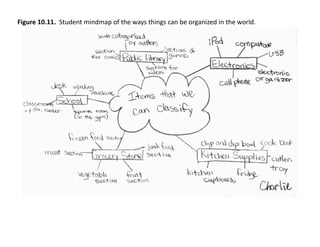 Figure 10.11. Student mindmap of the ways things can be organized in the world.
books categorized
by authors
section
for comics
Sections of
genres
Public Library
sections for
videos
iPod
computers
USB
Electronics
cellphone
electronic
organizer
desk
vending
machine
classrooms
School
sports room
(in the gym)
Items that we
can classify
frozen food section
meat section
junk food
section
Grocery Store
vegetable
section
fruit
section
chip and dip bowl
cook book
Kitchen Supplies
cutlery
tray
kitchen
cupboards
fridge
Charlie